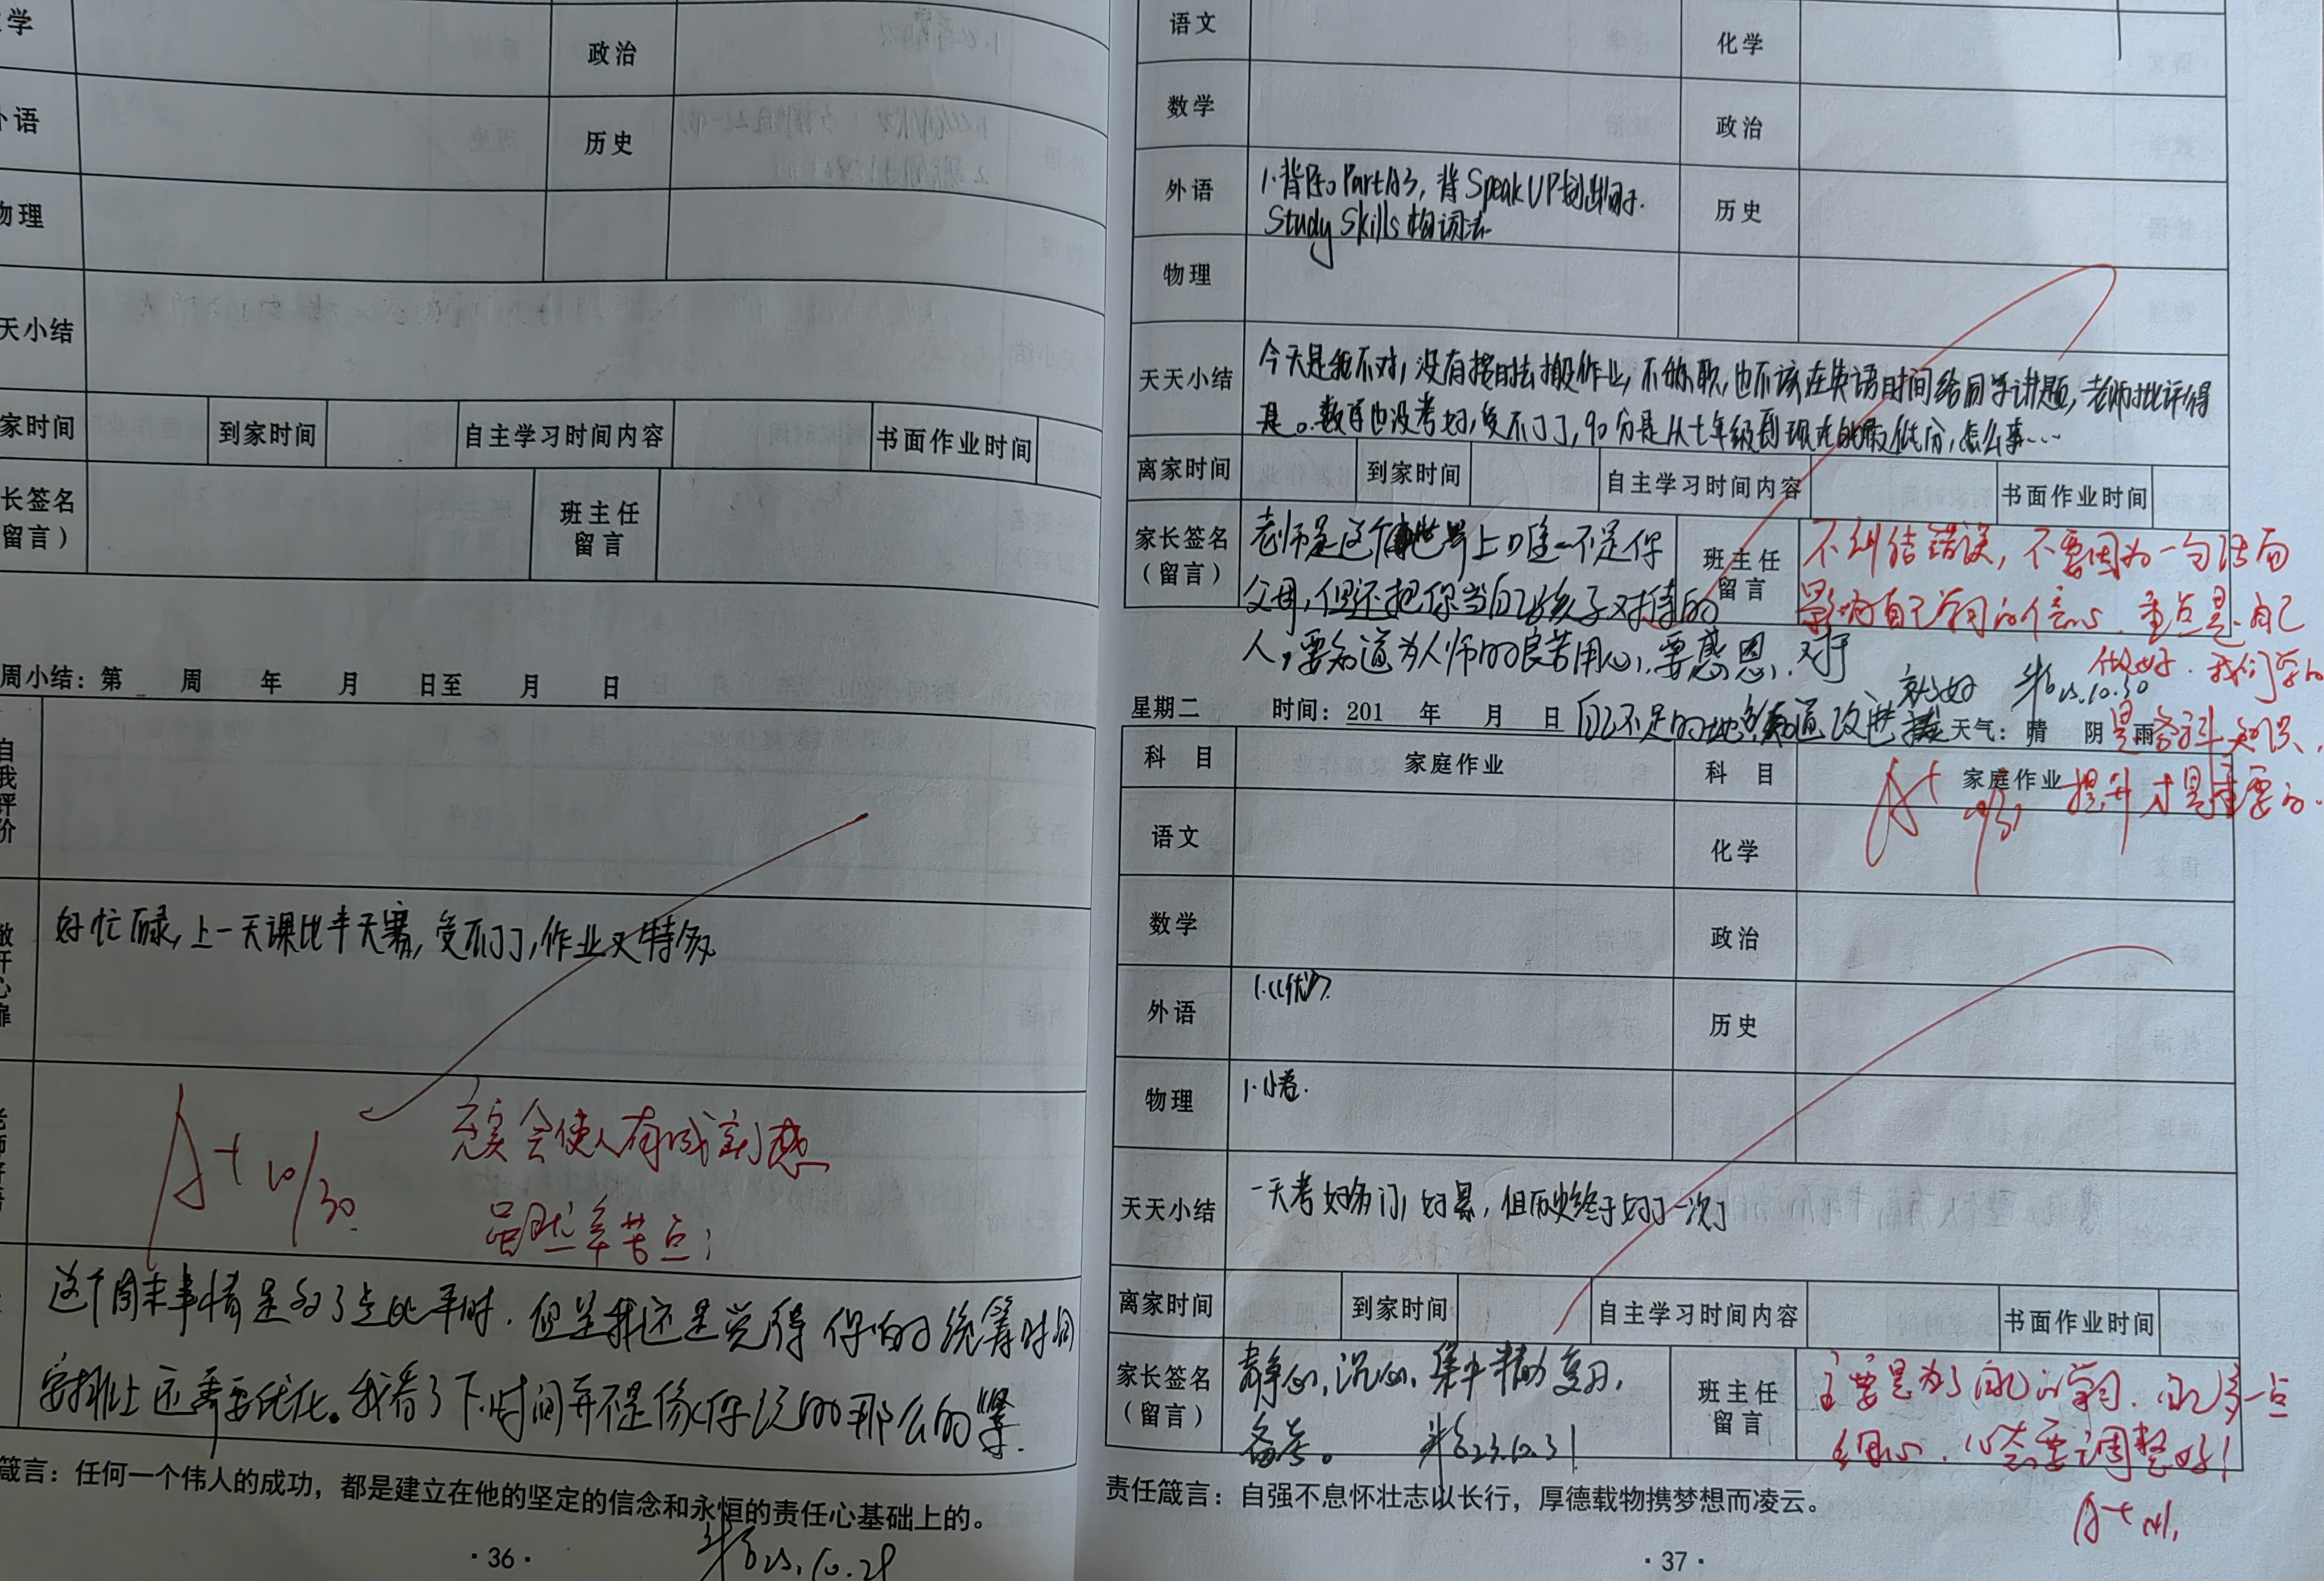 学
政治
外语
历史
物理
天小结
家时间 到家时间 自主学习时间内容 书面作业时间
长签名
留言）
班主任
留言
周小结：第 周 年 月 日至 月 日
自我评价
敞开心扉
好忙碌，上一天课比半天赛，受不了了，作业又特多
A+ 10/30
充实会使人有成就感
虽然辛苦点；
老师评语
这个周末事情是多了点比平时．但是我还是觉得你的统筹时间
安排上还需要优化。我看了下时间并不是像你说的那么的紧．
箴言：任何一个伟人的成功，都是建立在他的坚定的信念和永恒的责任心基础上的。
·36·
语文 化学
数学 政治
外语
1.背P50 PartA3，背Speak UP划出句子.
Study Skills 构词法
历史
物理
天天小结
今天是我不对，没有按时去搬作业，不称职，也不该在英语时间给同学讲题，老师批评得
是。数学也没考好，受不了了，90分是从七年级到现在的最低分，怎么事…
离家时间 到家时间 自主学习时间内容 书面作业时间
家长签名
（留言）
老师是这个世界上唯一不是你
父母，但还把你当自己孩子对待的
人，要知道为人师的良苦用心，要感恩．对于
自己不足的地方知道改进就好
23.10.30
班主任
留言
不纠结错误，不要因为一句话而
影响自己学习的信心．重点是自己
做好．我们学的
是各科知识，
提升才是重要的．
A+
星期二 时间：201 年 月 日 天气：晴 阴 雨
科 目 家庭作业 科 目 家庭作业
语文 化学
数学 政治
外语 1.《优》 历史
物理 1.小卷.
天天小结
一天考好多门，好累，但历史终于好了一次了
离家时间 到家时间 自主学习时间内容 书面作业时间
家长签名
（留言）
静心，沉心，集中精力复习，
备考。 23.10.31
班主任
留言
主要是为了自己的学习．自己多一点
细心．心态要调整好！
A+
责任箴言：自强不息怀壮志以长行，厚德载物携梦想而凌云。
·37·